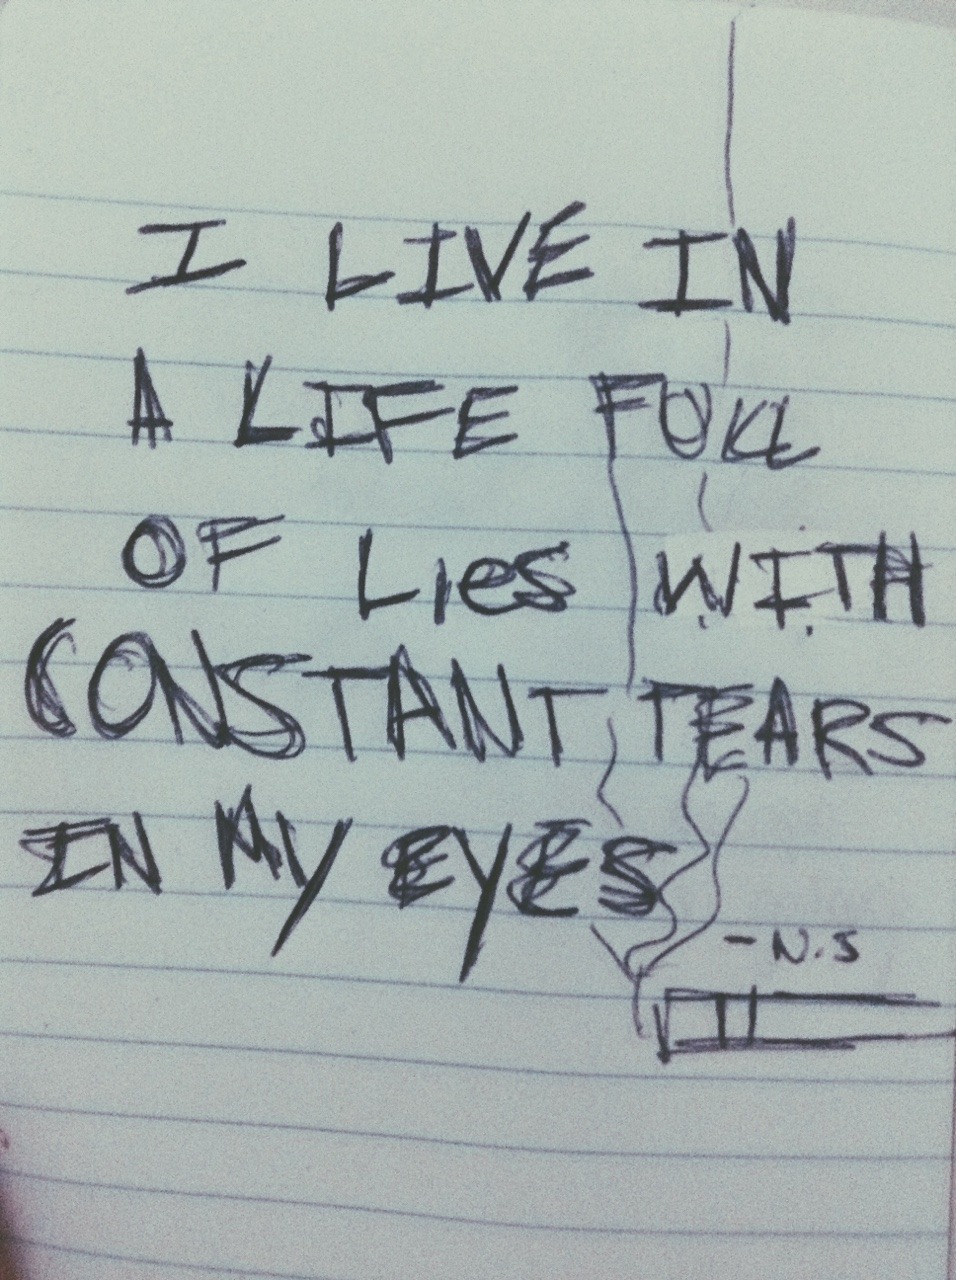 I LIVE IN
A LIFE FULL
OF Lies WITH
CONSTANT TEARS
IN MY EYES
- N.S